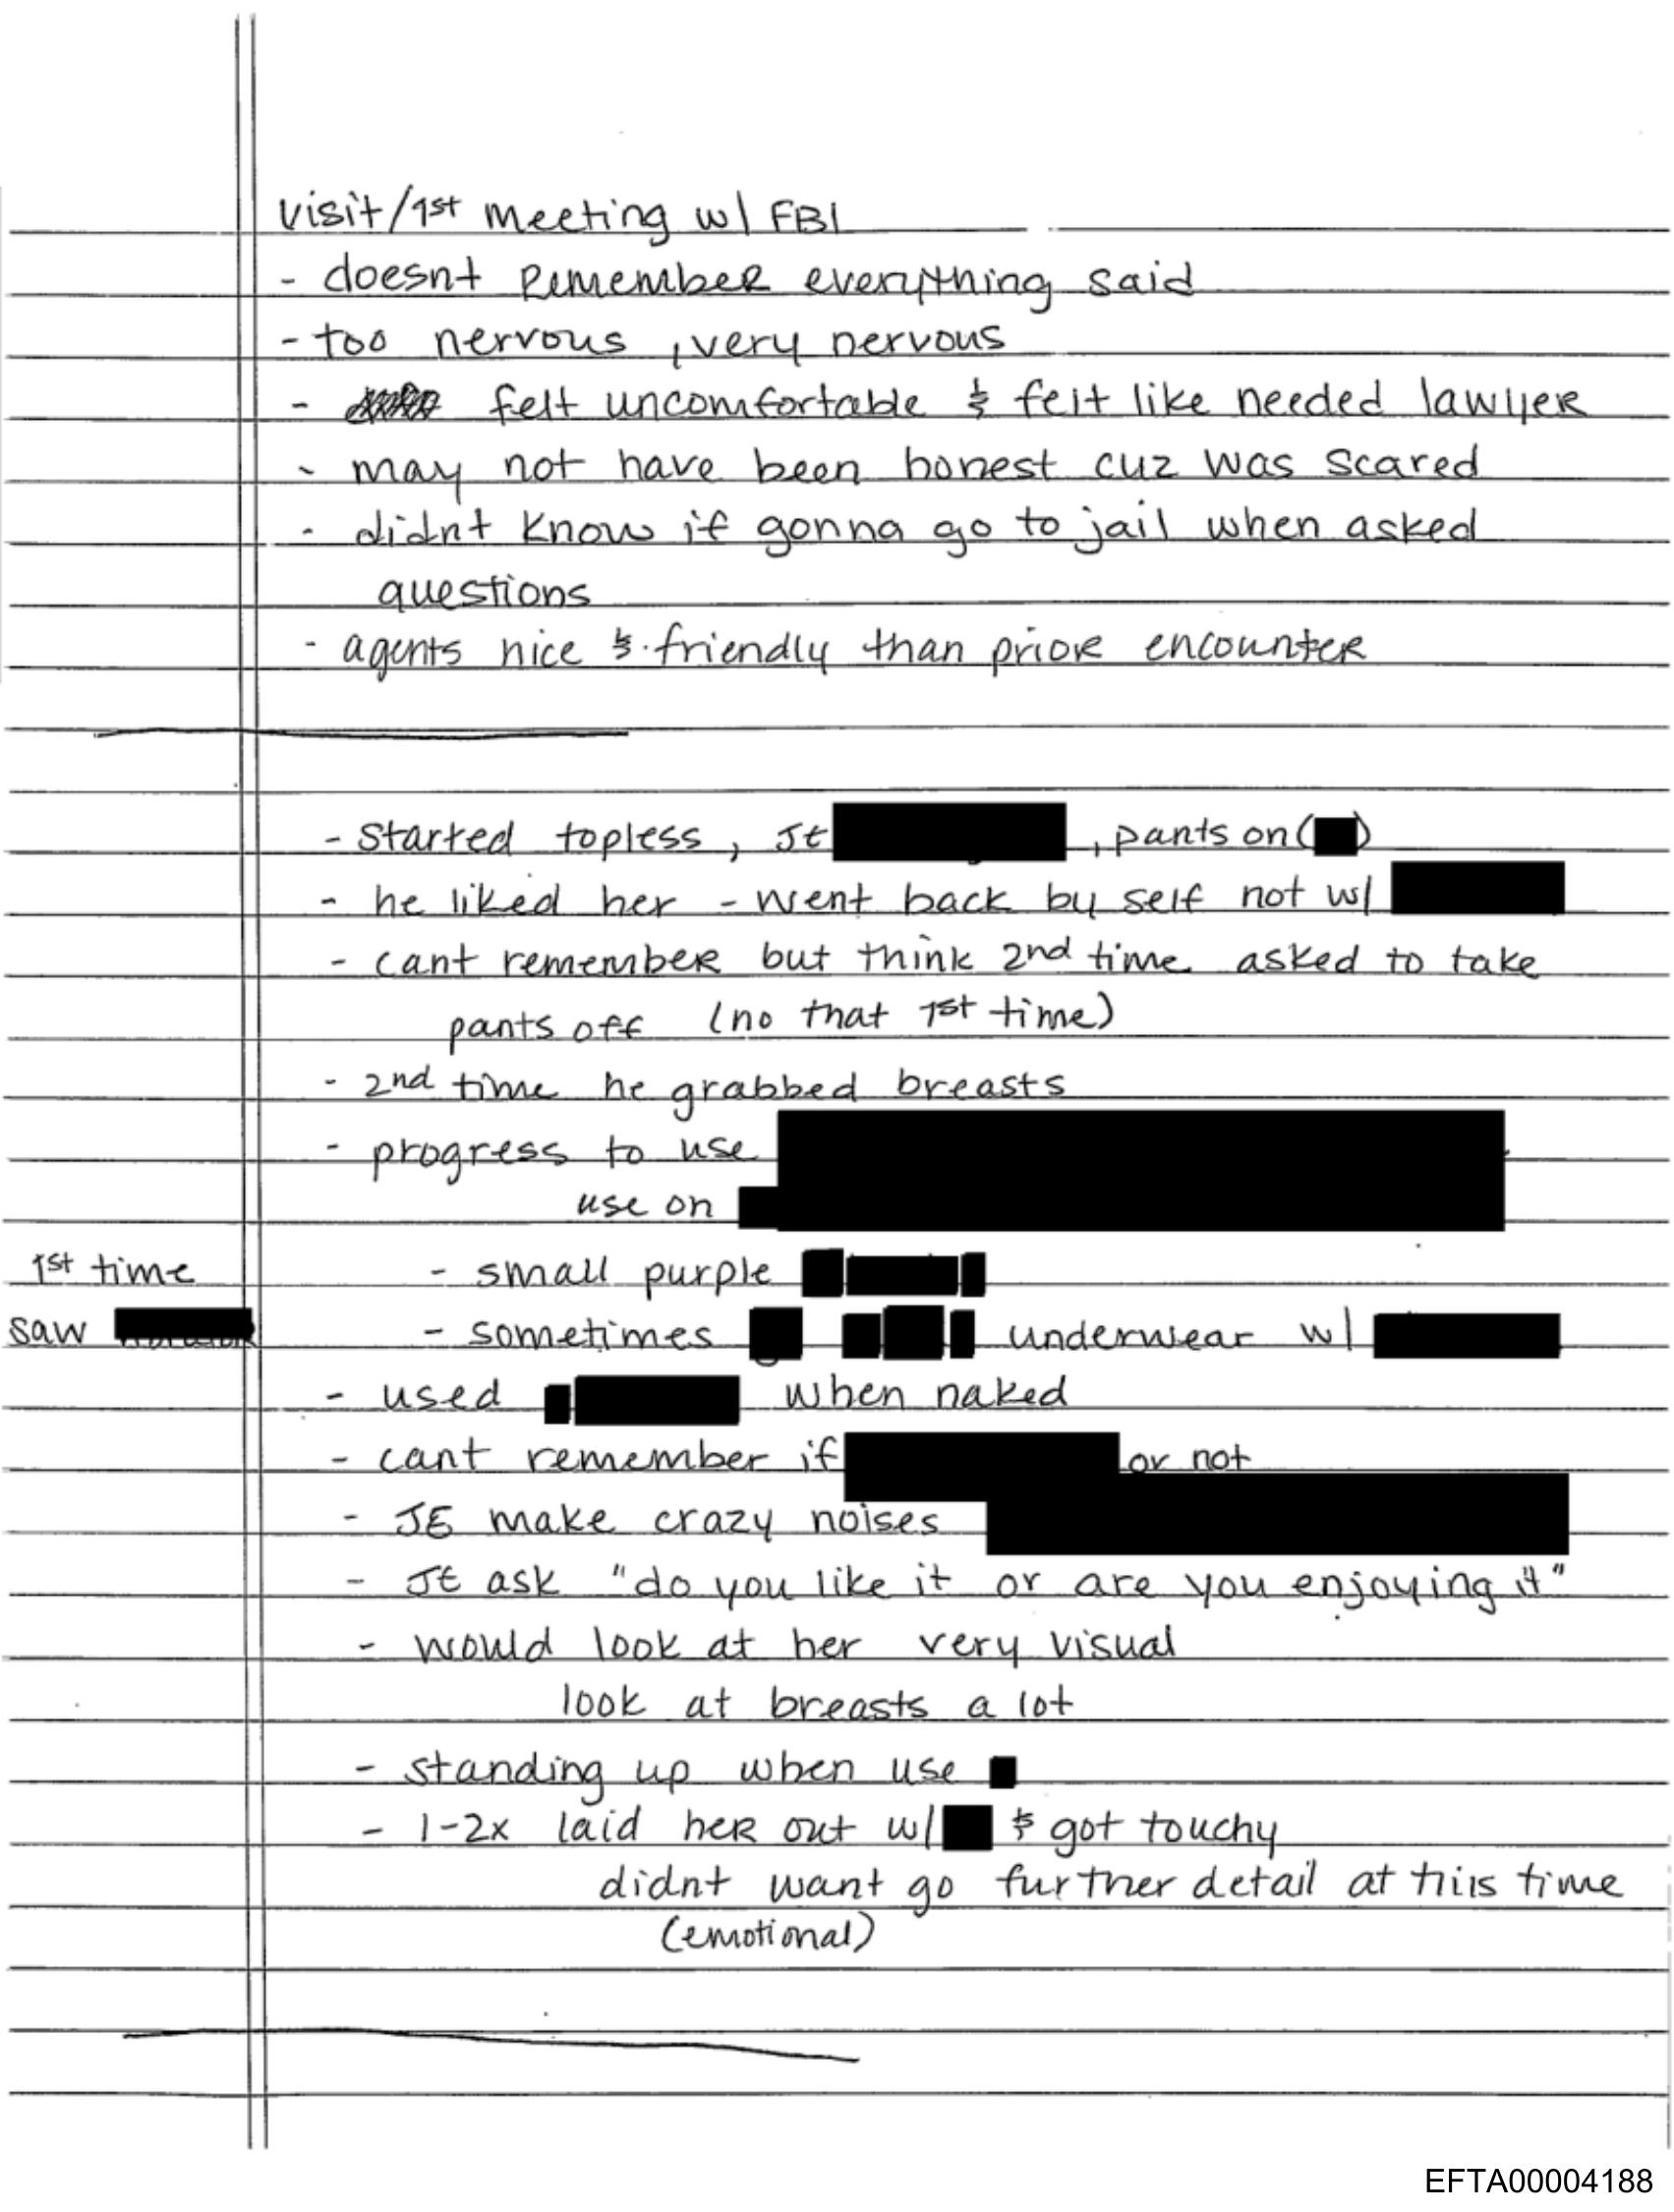 visit/1st meeting w/ FBI
- doesnt remember everything said
- too nervous, very nervous
- felt uncomfortable & felt like needed lawyer
- may not have been honest cuz was scared
- didnt know if gonna go to jail when asked
questions
- agents nice & friendly than prior encounter
- started topless, JE , pants on ( )
- he liked her - went back by self not w/
- cant remember but think 2nd time asked to take
pants off (no that 1st time)
- 2nd time he grabbed breasts
- progress to use
use on
1st time - small purple
saw - sometimes underwear w/
- used when naked
- cant remember if or not
- JE make crazy noises
- JE ask "do you like it or are you enjoying it"
- would look at her very visual
look at breasts a lot
- standing up when use
- 1-2x laid her out w/ & got touchy
didnt want go further detail at this time
(emotional)
EFTA00004188